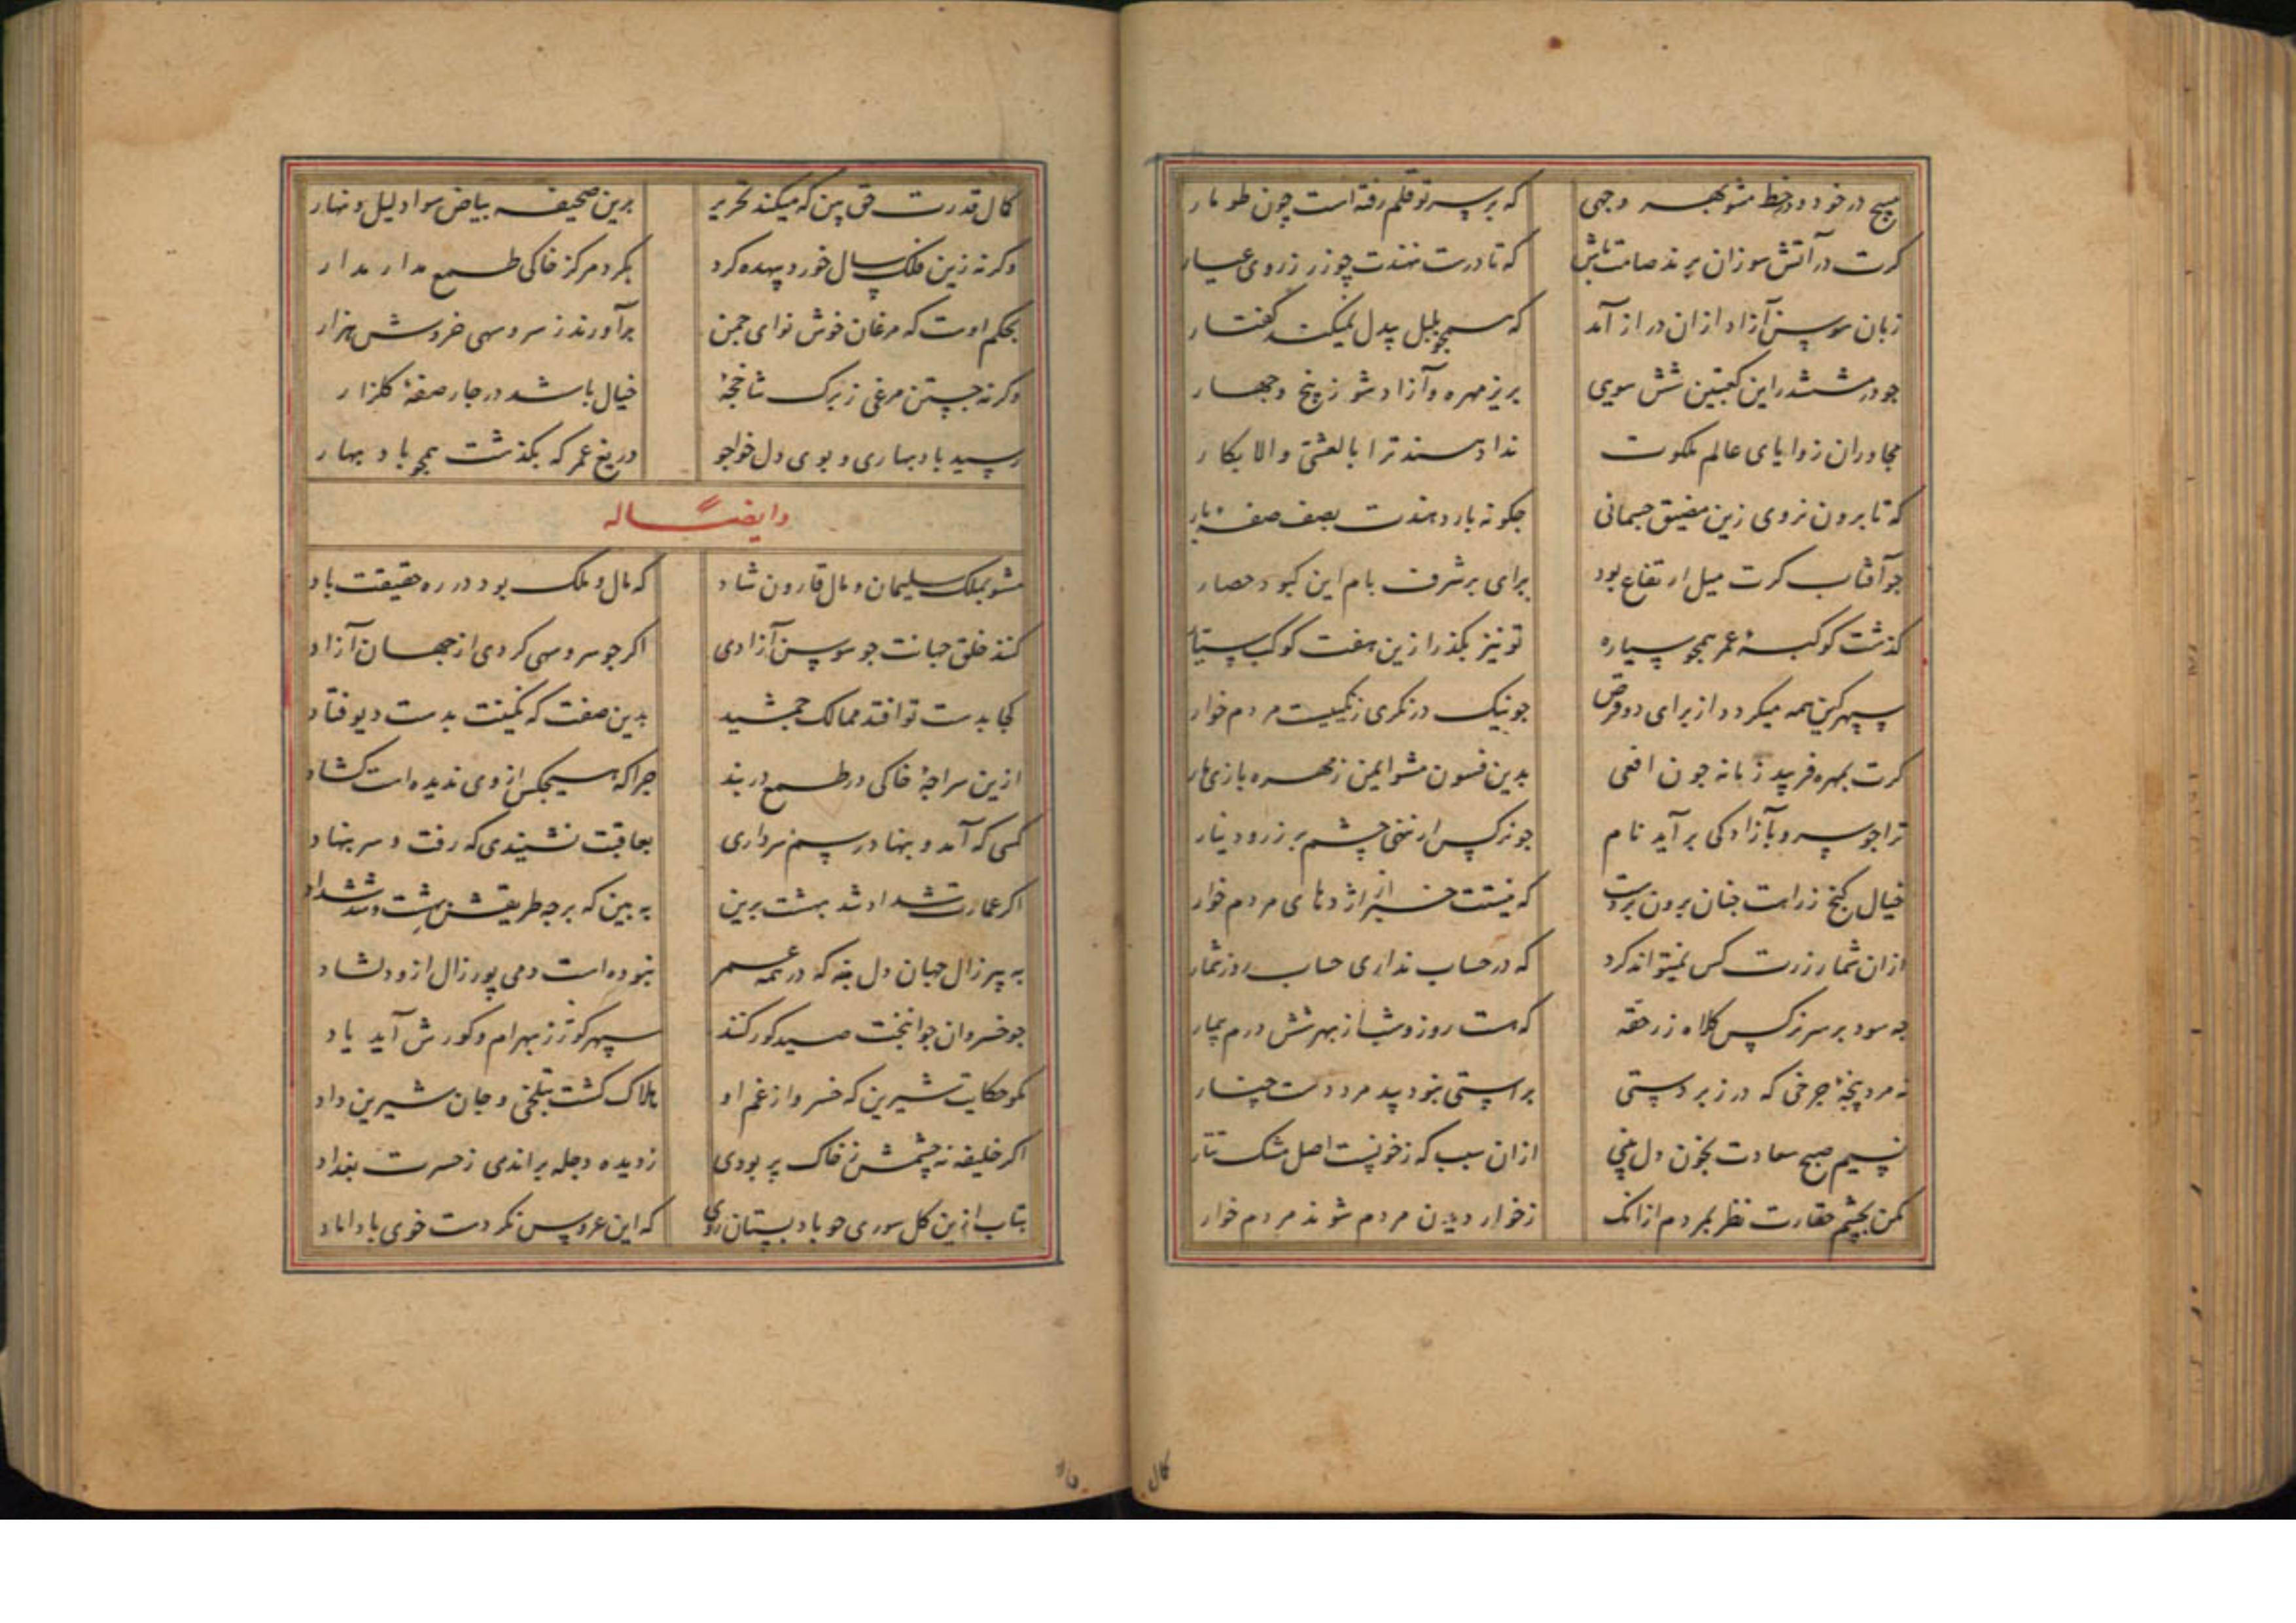 مپیچ در خود و در خط مشو بهر وجهی
که بر سر تو قلم رفته است چون طومار
کرت در آتش سوزان برند صامت باش
که نادرست نهندت چو زر ز روی عیار
زبان سوسن آزاد ازان دراز آمد
که همچو بلبل بیدل نمیکند گفتار
جو در ششدر این کعبتین شش سویی
بریز مهره و آزاد شو ز پنج و جهار
مجاوران زوایای عالم ملکوت
ندا دهند ترا بالعشی و الابکار
که تا برون نروی زین مضیق جسمانی
جکونه بار دهندت بصف صفه بار
جو آفتاب کرت میل ارتفاع بود
برای بر شرف بام این کبود حصار
کذشت کوکبه عمر همجو سیاره
تو نیز بکذر ازین هفت کوکب سیار
سپهر کین همه میکردد از برای دو قرص
جو نیک درنکری زنکییست مردم خوار
کرت بمهره فریبد زمانه جون افعی
بدین فسون مشو ایمن ز مهره بازی مار
ترا جو سرو بآزادکی بر آید نام
جو نرکس ار ننهی چشم بر زر و دینار
خیال کنج زر از ره جنان برون بردت
که نیستت خبر از اژدهای مردم خوار
ازان شمار زرت کس نمیتواند کرد
که در حساب نداری حساب روز شمار
جه سود بر سر نرکس کلاه زر حقه
که هست روز و شب از بهر شش درم بیمار
نه مرد پنجه جرخی که در زبردستی
براستی نبود بید مرد دست چنار
نسیم صبح سعادت بخون دل بینی
ازان سبب که ز خونست اصل مشک تتار
مکن بچشم حقارت نظر بمردم ازانک
ز خوار دیدن مردم شوند مردم خوار
کمال
کمال قدرت حق بین که میکند تحریر
برین صحیفه بیاض سواد لیل و نهار
وکرنه زین فلک سال خورد بیهده کرد
بکرد مرکز خاکی طمع مدار مدار
بحکم اوست که مرغان خوش نوای جمن
برآورند ز سرو سهی خروش هزار
وکرنه جستن مرغی ز برک شاخجهٔ
خیال باشد در جار صفهٔ کلزار
رسید باد بهاری و بوی دل خواجو
دریغ عمر که بکذشت همجو باد بهار
وایضاً له
مشو بملک سلیمان و مال قارون شاد
که مال و ملک بود در ره حقیقت باد
کنند خلق جهانت جو سوسن آزادی
اکر جو سرو سهی کردی از جهان آزاد
کجا بدست تو افتد ممالک جمشید
بدین صفت که نکینت بدست دیو فتاد
ازین سراجهٔ خاکی در طمع دربند
جرا که هیجکس از وی ندیده است کشاد
کسی که آمد و بنهاد رسم سرداری
بعاقبت نشنیدی که رفت و سر بنهاد
اکر عمارت شداد شد بهشت برین
به بین که بر چه طریقش بهشت و شد شداد
به پیر زال جهان دل منه که در همه عمر
نبوده است دمی پور زال ازو دلشاد
جو خسروان جوانبخت صید کور کنند
سپهر کوژ ز بهرام و کورش آید یاد
مکو حکایت شیرین که خسرو از غم او
هلاک کشت بتلخی و جان شیرین داد
اکر خلیفه نه چشمش ز خاک پر بودی
ز دیده دجله براندی ز حسرت بغداد
متاب ازین کل سوری جو باد بستان روی
که این عروس نکردست خوی با داماد